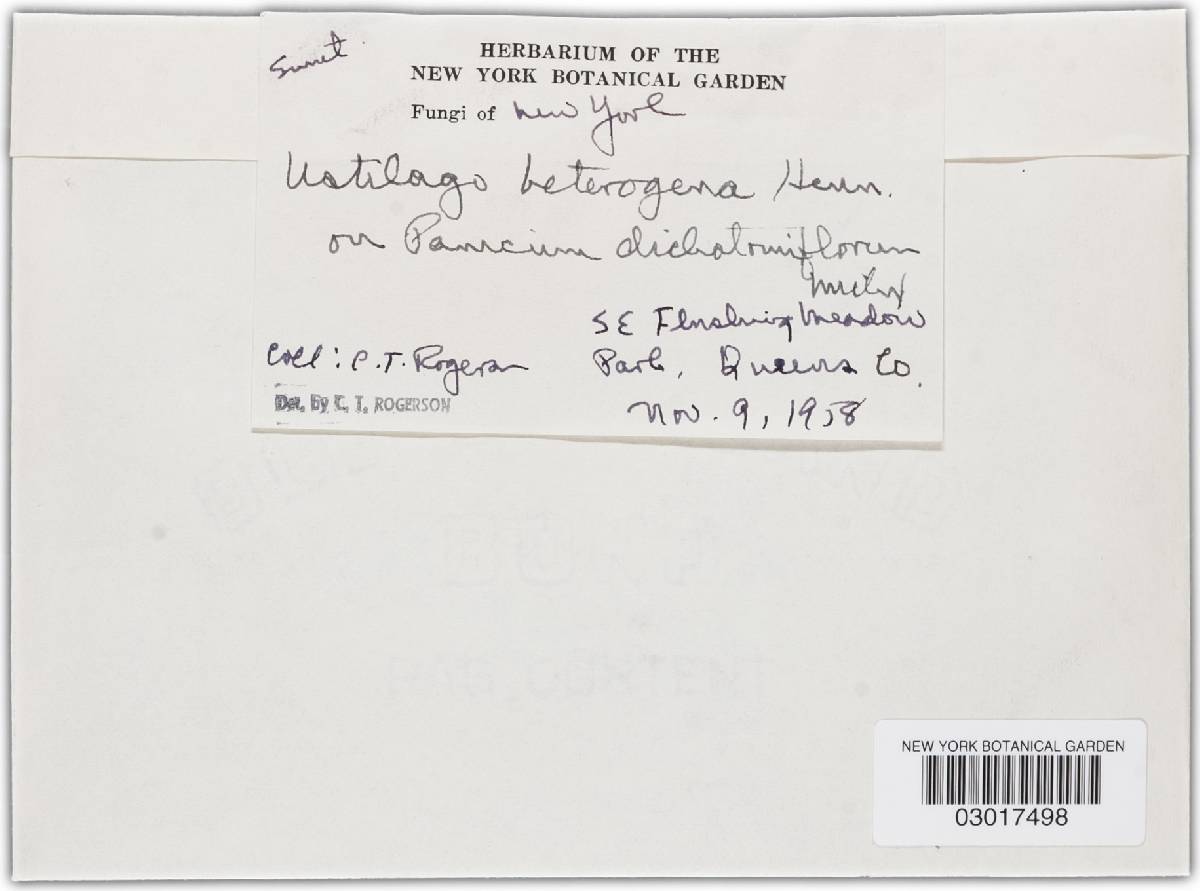 Smut
HERBARIUM OF THE
NEW YORK BOTANICAL GARDEN
Fungi of New York
Ustilago heterogena Henn.
on Panicum dichotomiflorum
Michx
SE Flushing Meadow
Park, Queens Co.
Coll: C. T. Rogerson
Det. by C. T. ROGERSON
Nov. 9, 1958
NEW YORK BOTANICAL GARDEN
03017498